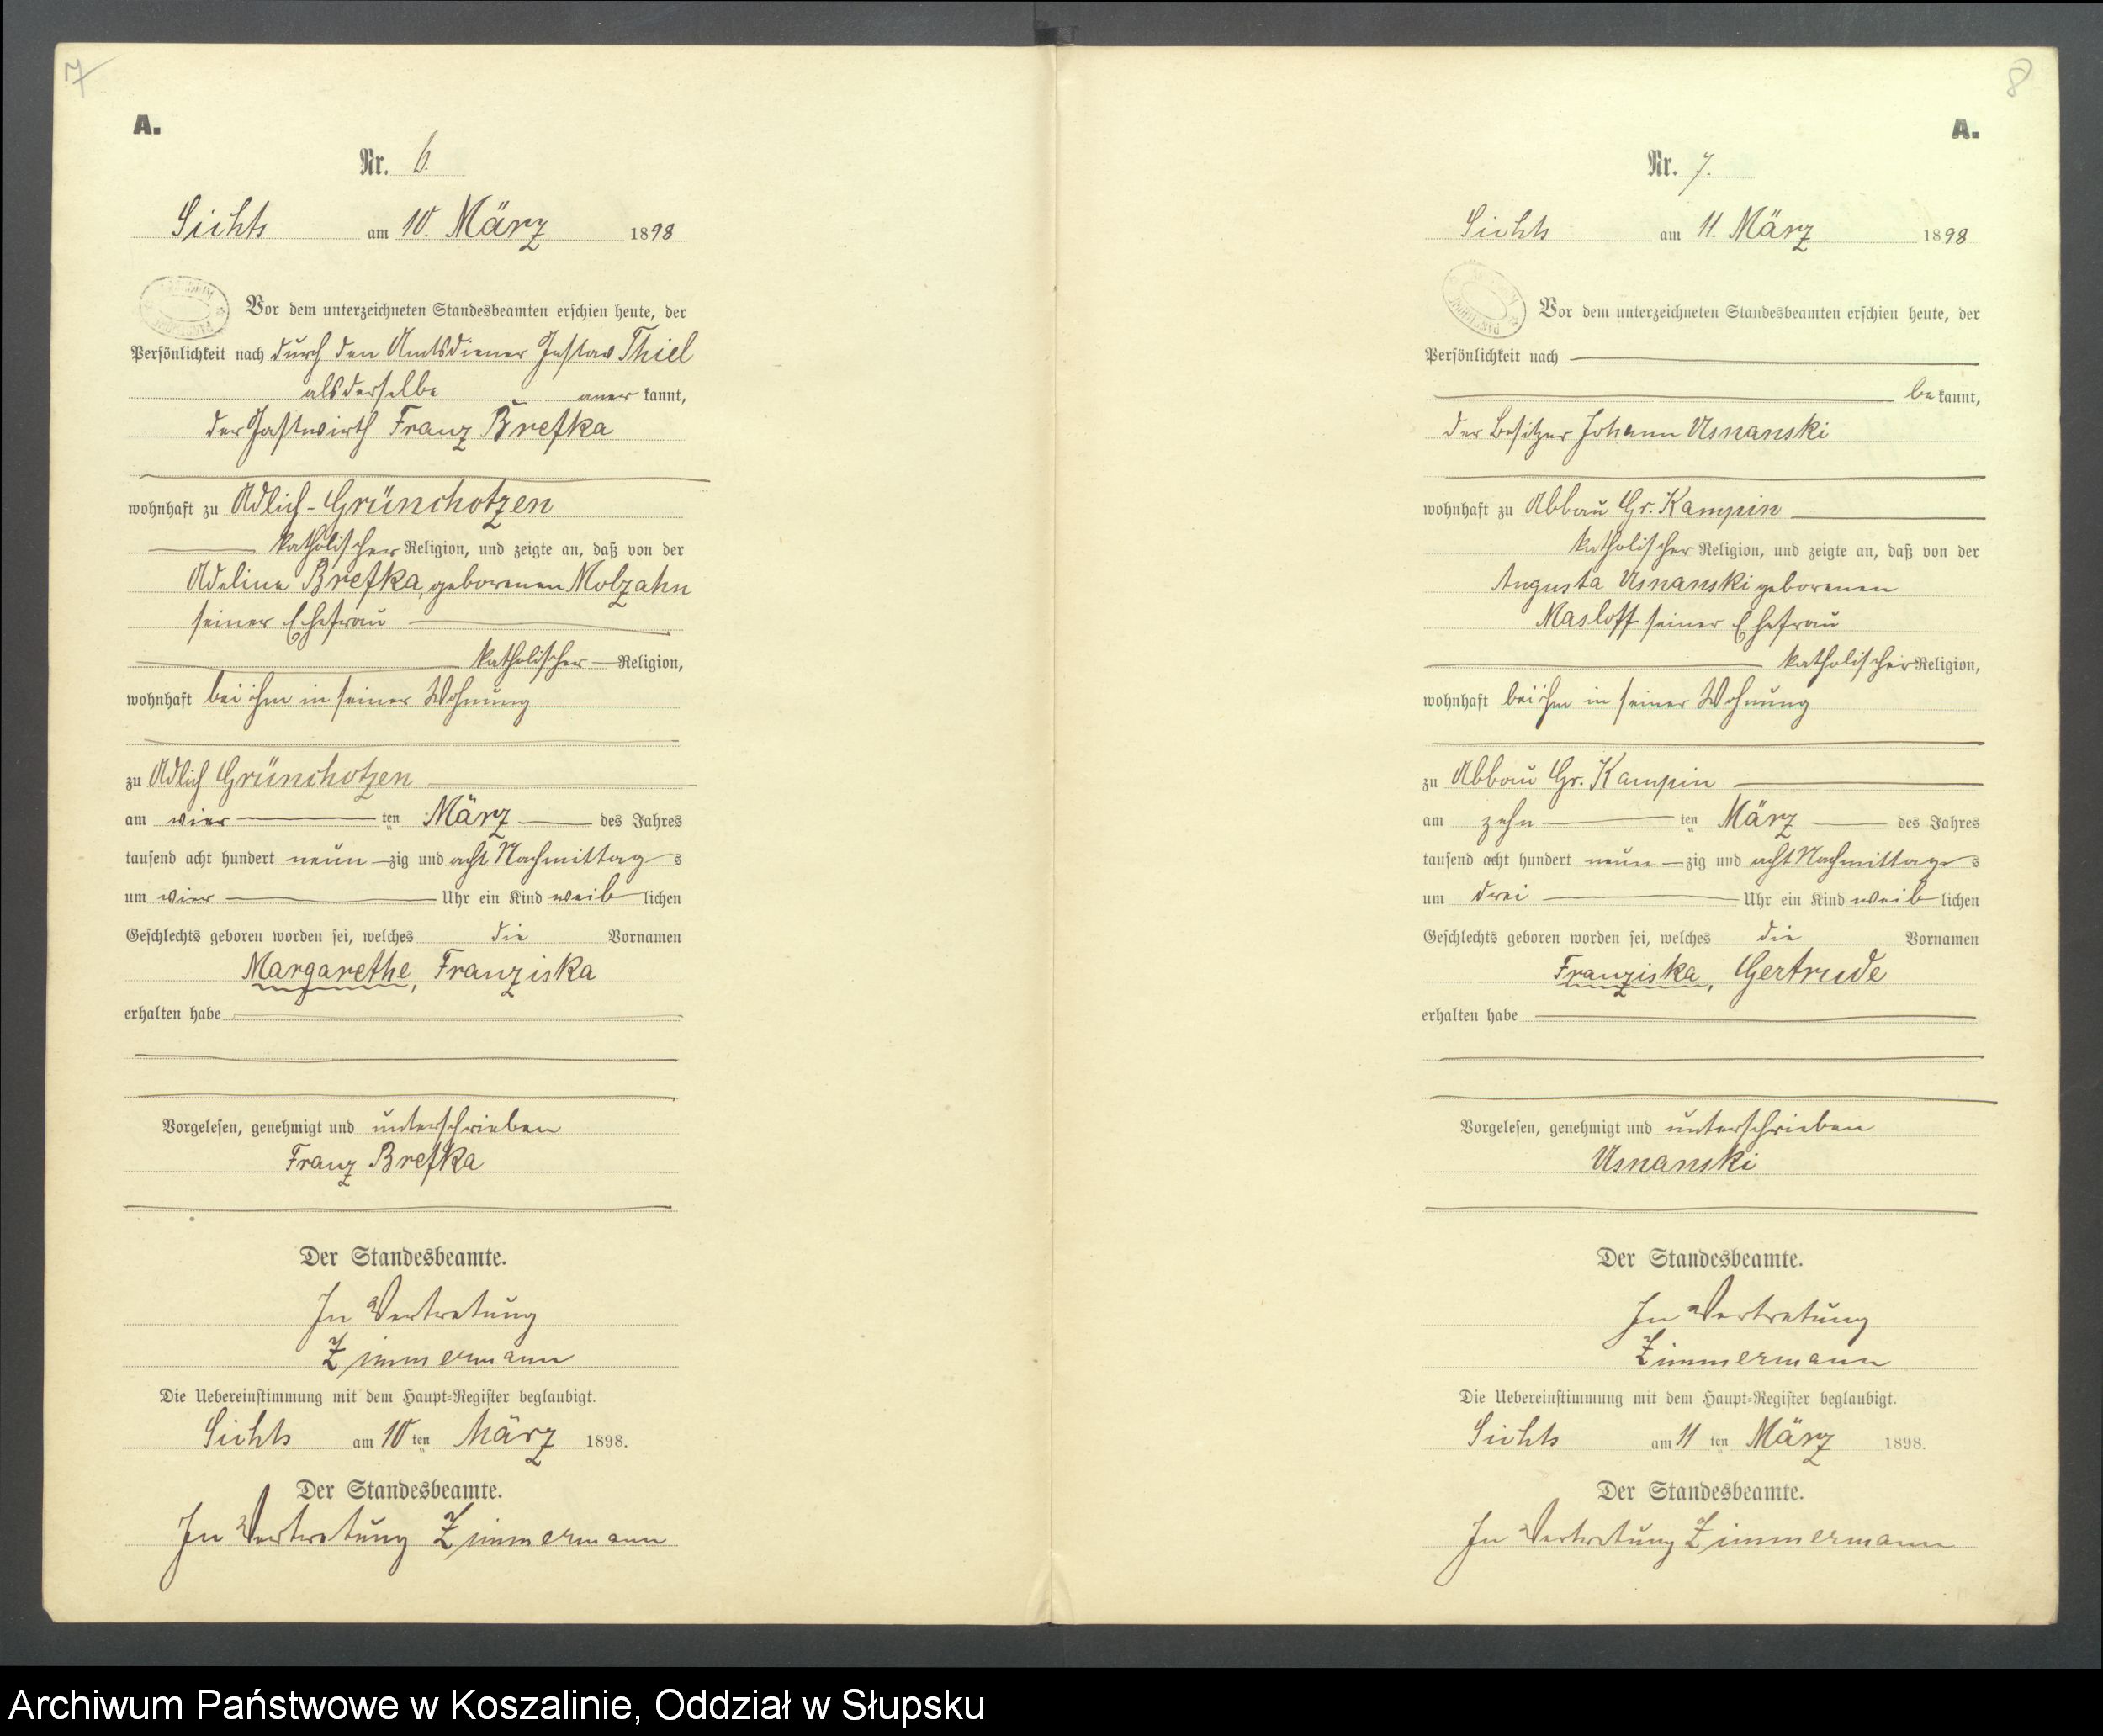 7
A.
Nr. 6.
Sichts am 10. März 1898
Vor dem unterzeichneten Standesbeamten erschien heute, der
Persönlichkeit nach durch den Amtsdiener Gustav Thiel
als derselbe anerkannt,
der Gastwirth Franz Brefka
wohnhaft zu Adlich-Grünchotzen
katholischer Religion, und zeigte an, daß von der
Adeline Brefka, geborenen Molzahn
seiner Ehefrau
katholischer Religion,
wohnhaft bei ihm in seiner Wohnung
zu Adlich Grünchotzen
am vier ten März des Jahres
tausend acht hundert neunzig und acht Nachmittags
um vier Uhr ein Kind weiblichen
Geschlechts geboren worden sei, welches die Vornamen
Margarethe, Franziska
erhalten habe
Vorgelesen, genehmigt und unterschrieben
Franz Brefka
Der Standesbeamte.
In Vertretung
Zimmermann
Die Uebereinstimmung mit dem Haupt-Register beglaubigt.
Sichts am 10ten März 1898.
Der Standesbeamte.
In Vertretung Zimmermann
8
A.
Nr. 7.
Sichts am 11. März 1898
Vor dem unterzeichneten Standesbeamten erschien heute, der
Persönlichkeit nach
bekannt,
der Besitzer Johann Usnanski
wohnhaft zu Abbau Gr. Kampin
katholischer Religion, und zeigte an, daß von der
Augusta Usnanski geborenen
Masloff seiner Ehefrau
katholischer Religion,
wohnhaft bei ihm in seiner Wohnung
zu Abbau Gr. Kampin
am zehn ten März des Jahres
tausend acht hundert neunzig und acht Nachmittags
um drei Uhr ein Kind weiblichen
Geschlechts geboren worden sei, welches die Vornamen
Franziska, Gertrude
erhalten habe
Vorgelesen, genehmigt und unterschrieben
Usnanski
Der Standesbeamte.
In Vertretung
Zimmermann
Die Uebereinstimmung mit dem Haupt-Register beglaubigt.
Sichts am 11ten März 1898.
Der Standesbeamte.
In Vertretung Zimmermann
Archiwum Państwowe w Koszalinie, Oddział w Słupsku